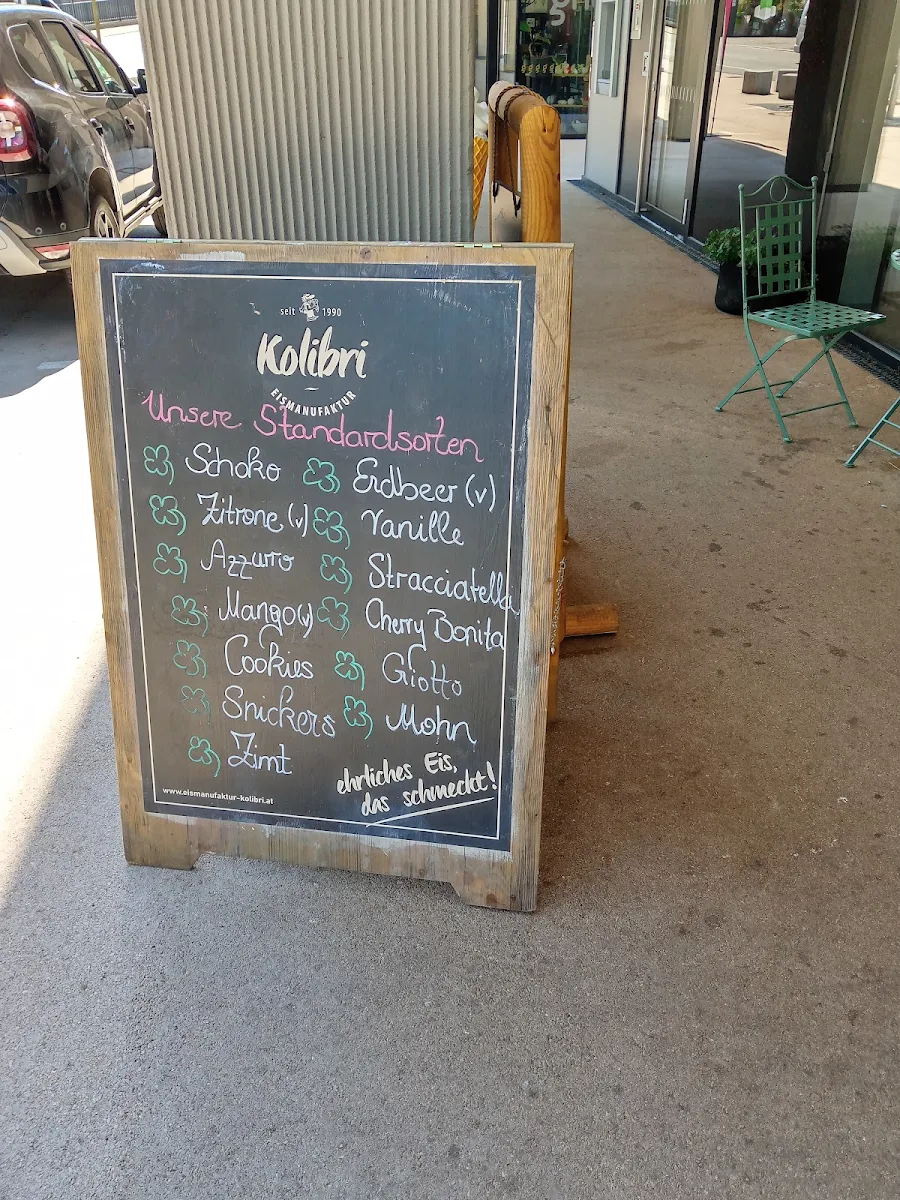 seit 1990
Kolibri
EISMANUFAKTUR
Unsere Standardsorten
Schoko
Zitrone (v)
Azzurro
Mango (v)
Cookies
Snickers
Zimt
Erdbeer (v)
Vanille
Stracciatella
Cherry Bonita
Giotto
Mohn
ehrliches Eis,
das schmeckt!
www.eismanufaktur-kolibri.at